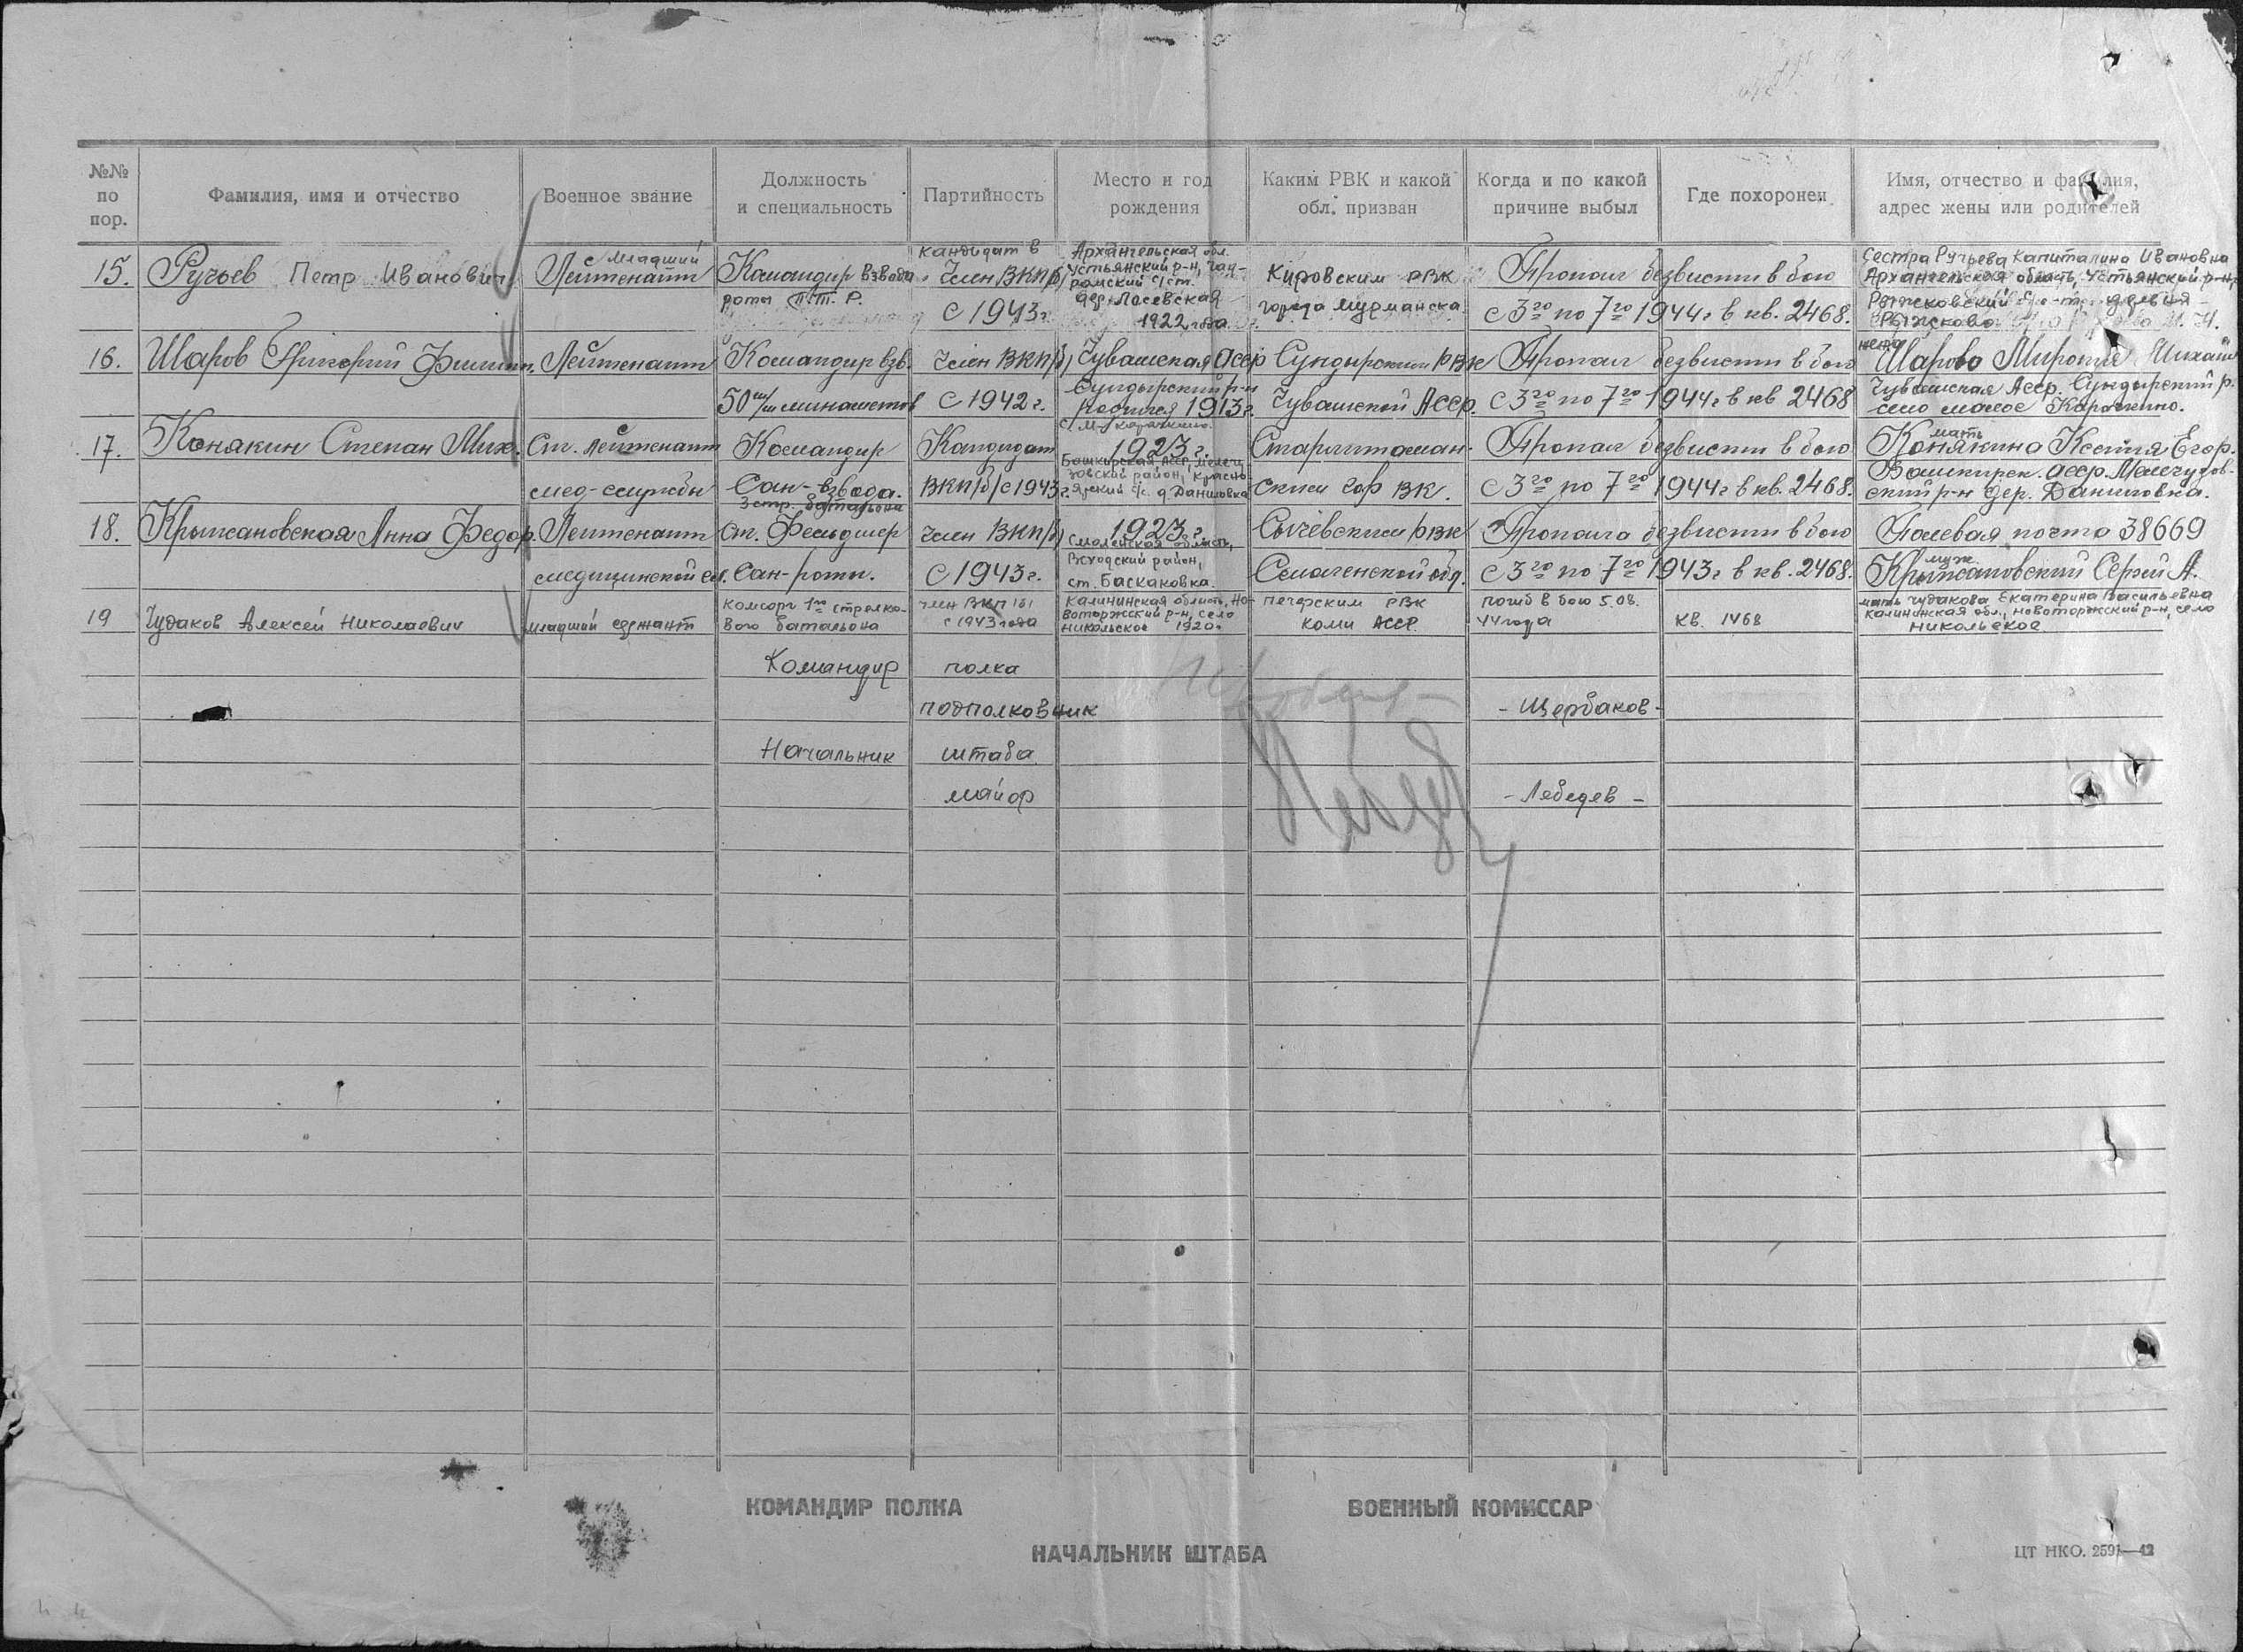 №№ по пор.
Фамилия, имя и отчество
Военное звание
Должность и специальность
Партийность
Место и год рождения
Каким РВК и какой обл. призван
Когда и по какой причине выбыл
Где похоронен
Имя, отчество и фамилия, адрес жены или родителей
15. Ручьев Петр Иванович
Младший
Лейтенант
Командир взвода
роты П.Т.Р.
Кандидат в
Член ВКП(б)
с 1943 г.
Архангельская обл.
Устьянский р-н,
с/ст.
дер. Лосевская
1922 года
Кировским РВК
города Мурманска
Пропал безвисти в бою
с 3го по 7го 1944 г в кв. 2468.
Сестра Ручьева Капиталина Ивановна
Архангельская область, Устьянский р-н,
Рыжковский
Рыжково
16. Шаров Григорий Филип.
Лейтенант
Командир взв.
50 м/м минометов
Член ВКП(б)
с 1942 г.
Чувашская АССР
Сундырский р-н
Родился 1913 г.
с. М-Карачкино.
Сундырским РВК
Чувашской АССР.
Пропал безвисти в бою
с 3го по 7го 1944 г в кв 2468
жена
Шарова Михайл
Чувашская АССР. Сундырский р.
село малое Карачкино.
17. Конякин Степан Мих.
Ст. лейтенант
мед-службы
Командир
Сан-взвода.
3 стр. батальона
Кандидат
ВКП/б/ с 1943 г.
1923 г.
Башкирская АССР,
район, Красно-
ярский с/с. д. Даниловка
Стерлитамак-
ским Гор ВК.
Пропал безвисти в бою
с 3го по 7го 1944 г в кв. 2468.
мать
Конякина Ксения Егор.
Башкирск. АССР.
ский р-н дер. Даниловка.
18. Крыжановская Анна Федор.
Лейтенант
медицинской сл.
Ст. Фельдшер
Сан-роты.
Член ВКП(б)
с 1943 г.
1923 г.
Смоленская область,
Всходский район,
ст. Баскаковка.
Сычевским РВК
Смоленской обл.
Пропала безвисти в бою
с 3го по 7го 1943 г в кв. 2468.
Полевая почта 38669
муж
Крыжановский Сергей А.
19 Чудаков Алексей Николаевич
младший сержант
Комсорг 1го стрелко-
вого батальона
член ВКП(б)
с 1943 года
Калининская область, Но-
воторжский р-н, село
Никольское 1920 г
Печерским РВК
Коми АССР.
погиб в бою 5.08.
44 года
КВ. 1468
мать Чудакова Екатерина Васильевна
Калининская обл., Новоторжский р-н, село
Никольское
Командир полка
подполковник - Щербаков -
Начальник штаба
майор - Лебедев -
КОМАНДИР ПОЛКА
ВОЕННЫЙ КОМИССАР
НАЧАЛЬНИК ШТАБА
ЦТ НКО. 2591—42